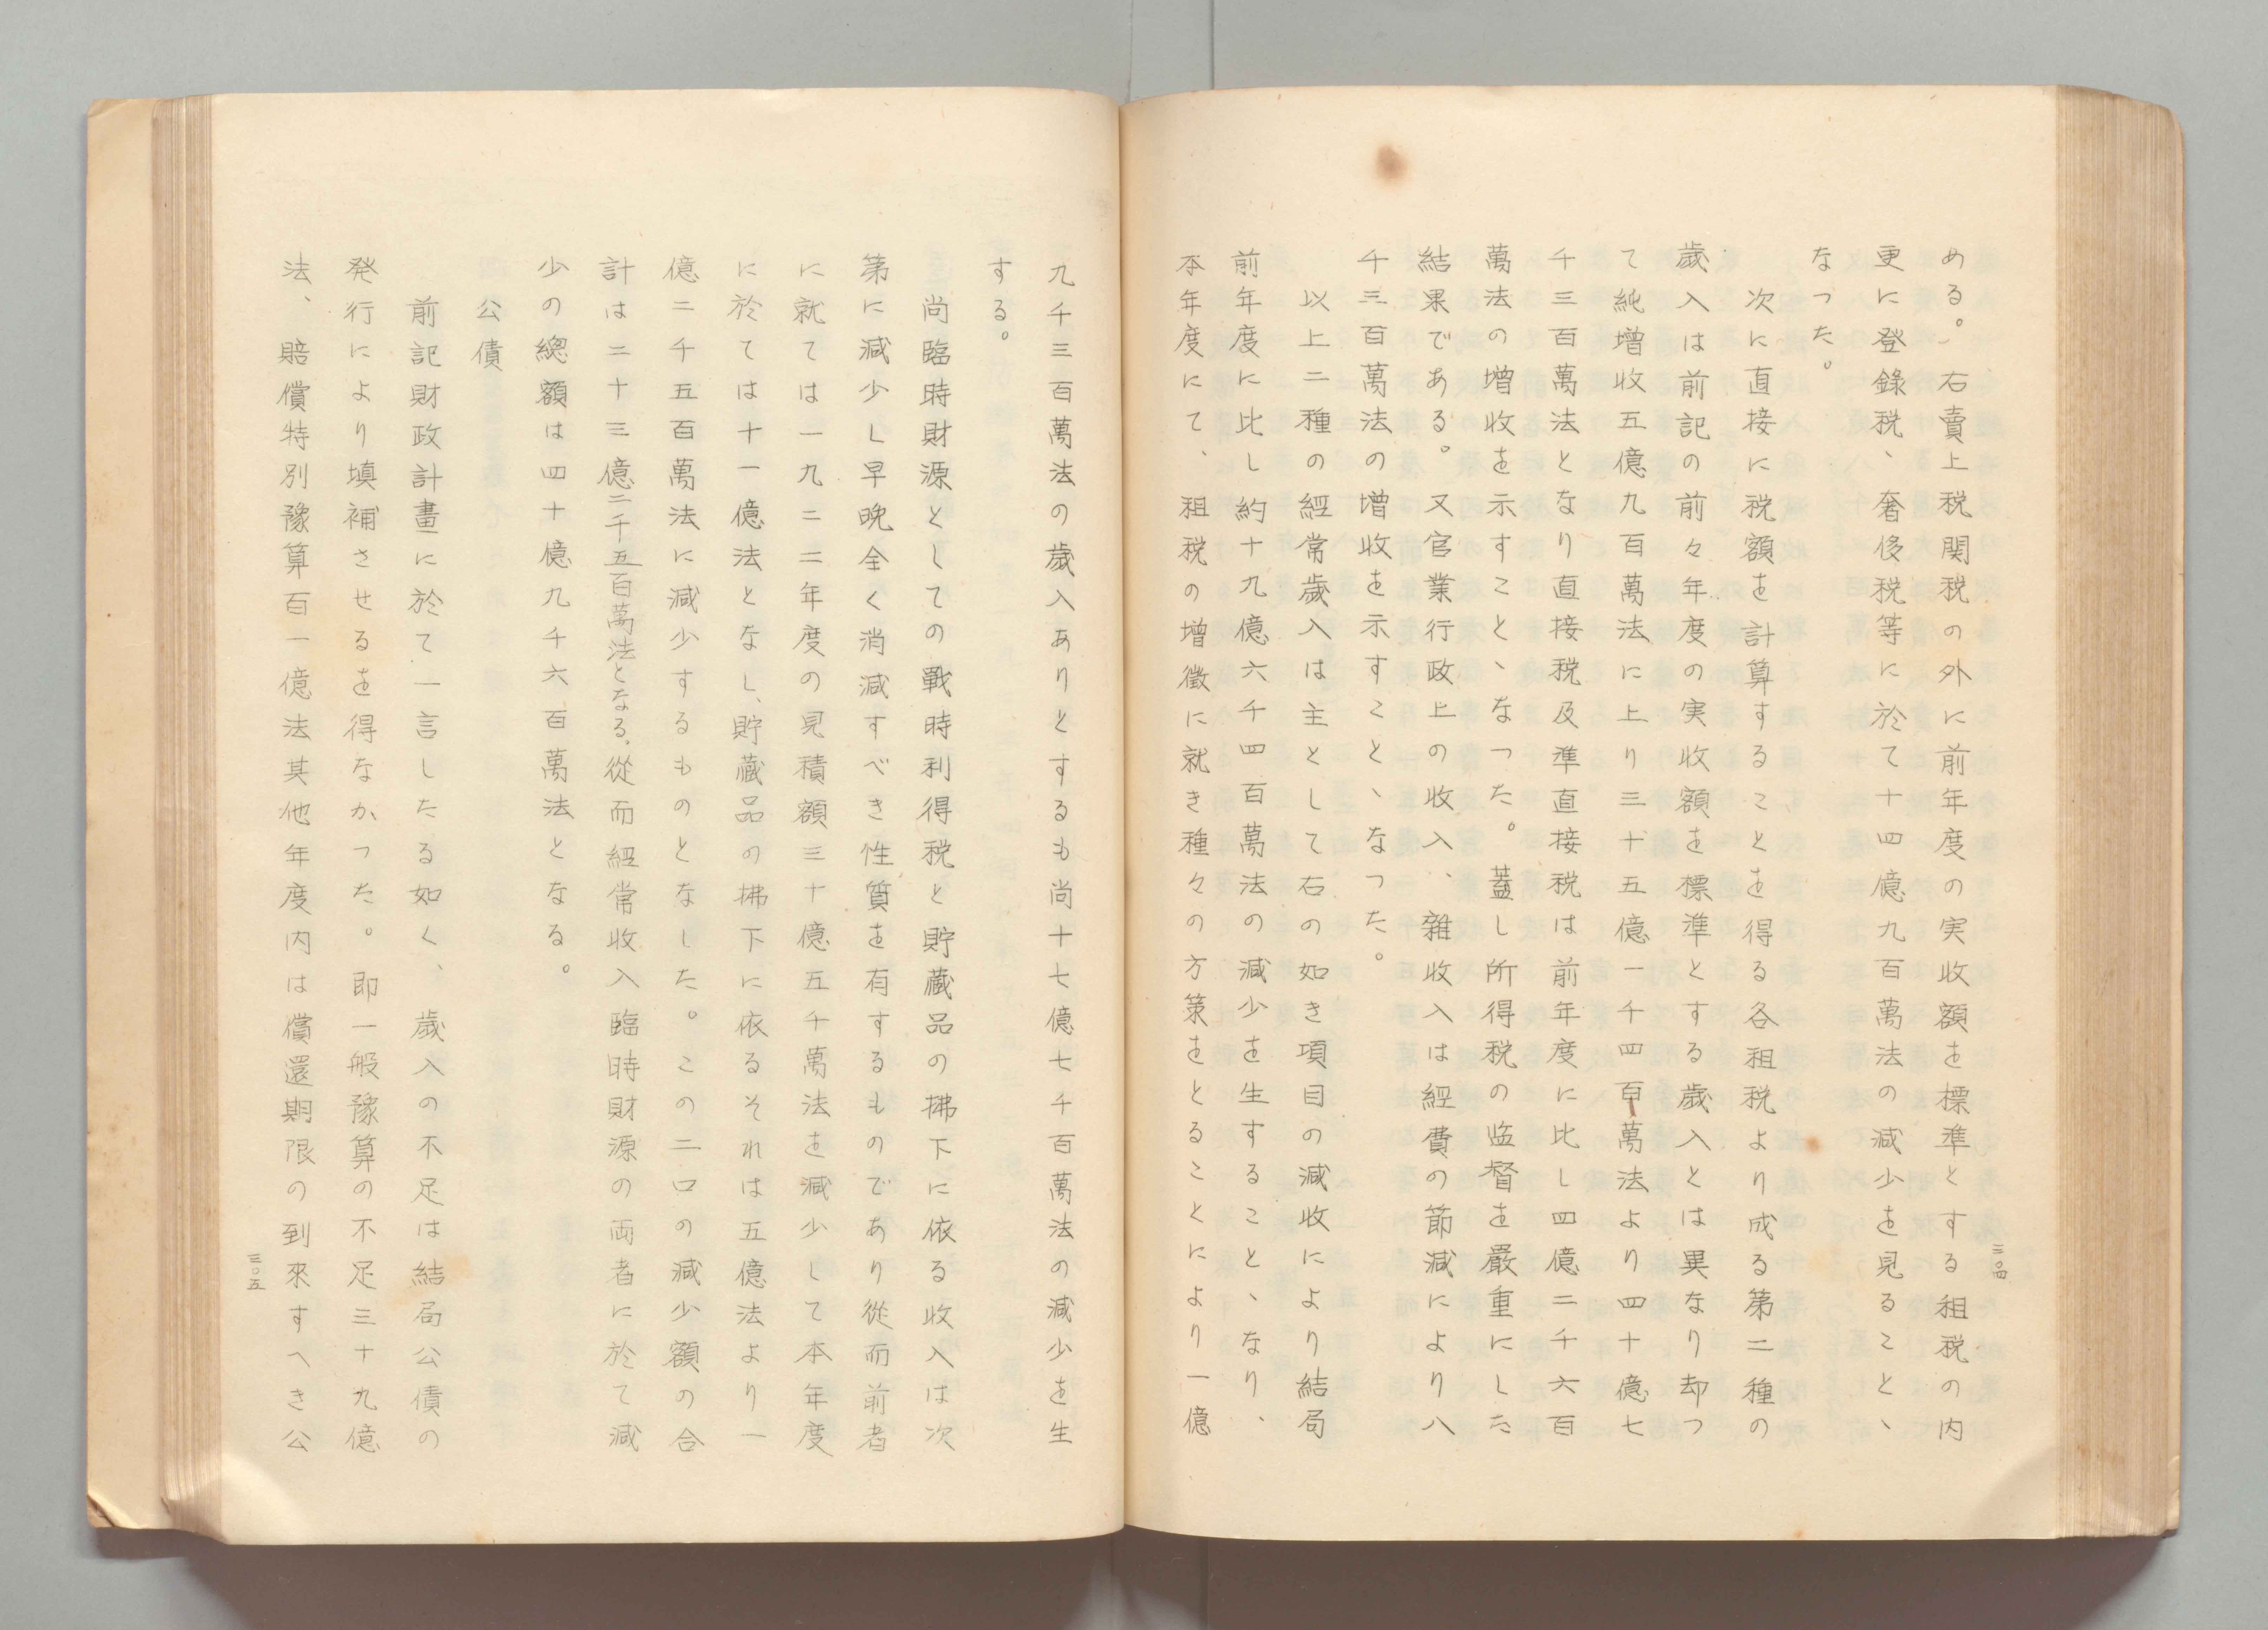 める。右賣上税関税の外に前年度の実收額を標準とする租税の内
更に登錄税、奢侈税等に於て十四億九百萬法の減少を見ること、
なつた。
次に直接に税額を計算することを得る各租税より成る第二種の
歲入は前記の前々年度の実收額を標準とする歲入とは異なり却つ
て純增收五億九百萬法に上り三十五億一千四百萬法より四十億七
千三百萬法となり直接税及準直接税は前年度に比し四億二千六百
萬法の增收を示すこと、なつた。蓋し所得税の监督を嚴重にした
結果である。又官業行政上の收入、雜收入は經費の節減により八
千三百萬法の增收を示すこと、なつた。
以上二種の經常歲入は主として右の如き項目の減收により結局
前年度に比し約十九億六千四百萬法の減少を生ずること、なり、
本年度にて、租税の增徵に就き種々の方策をとることにより一億
三〇四
九千三百萬法の歲入ありとするも尚十七億七千百萬法の減少を生
する。
尚臨時財源としての戰時利得税と貯藏品の拂下に依る收入は次
第に減少し早晩全く消滅すべき性質を有するものであり從而前者
に就ては一九二二年度の見積額三十億五千萬法を減少して本年度
に於ては十一億法となし、貯藏品の拂下に依るそれは五億法より一
億二千五百萬法に減少するものとなした。この二口の減少額の合
計は二十三億二千五百萬法となる、從而經常收入臨時財源の両者に於て減
少の總額は四十億九千六百萬法となる。
公債
前記財政計畫に於て一言したる如く、歲入の不足は結局公債の
発行により填補させるを得なかつた。即一般豫算の不足三十九億
法、賠償特別豫算百一億法其他年度内は償還期限の到來すへき公
三〇五